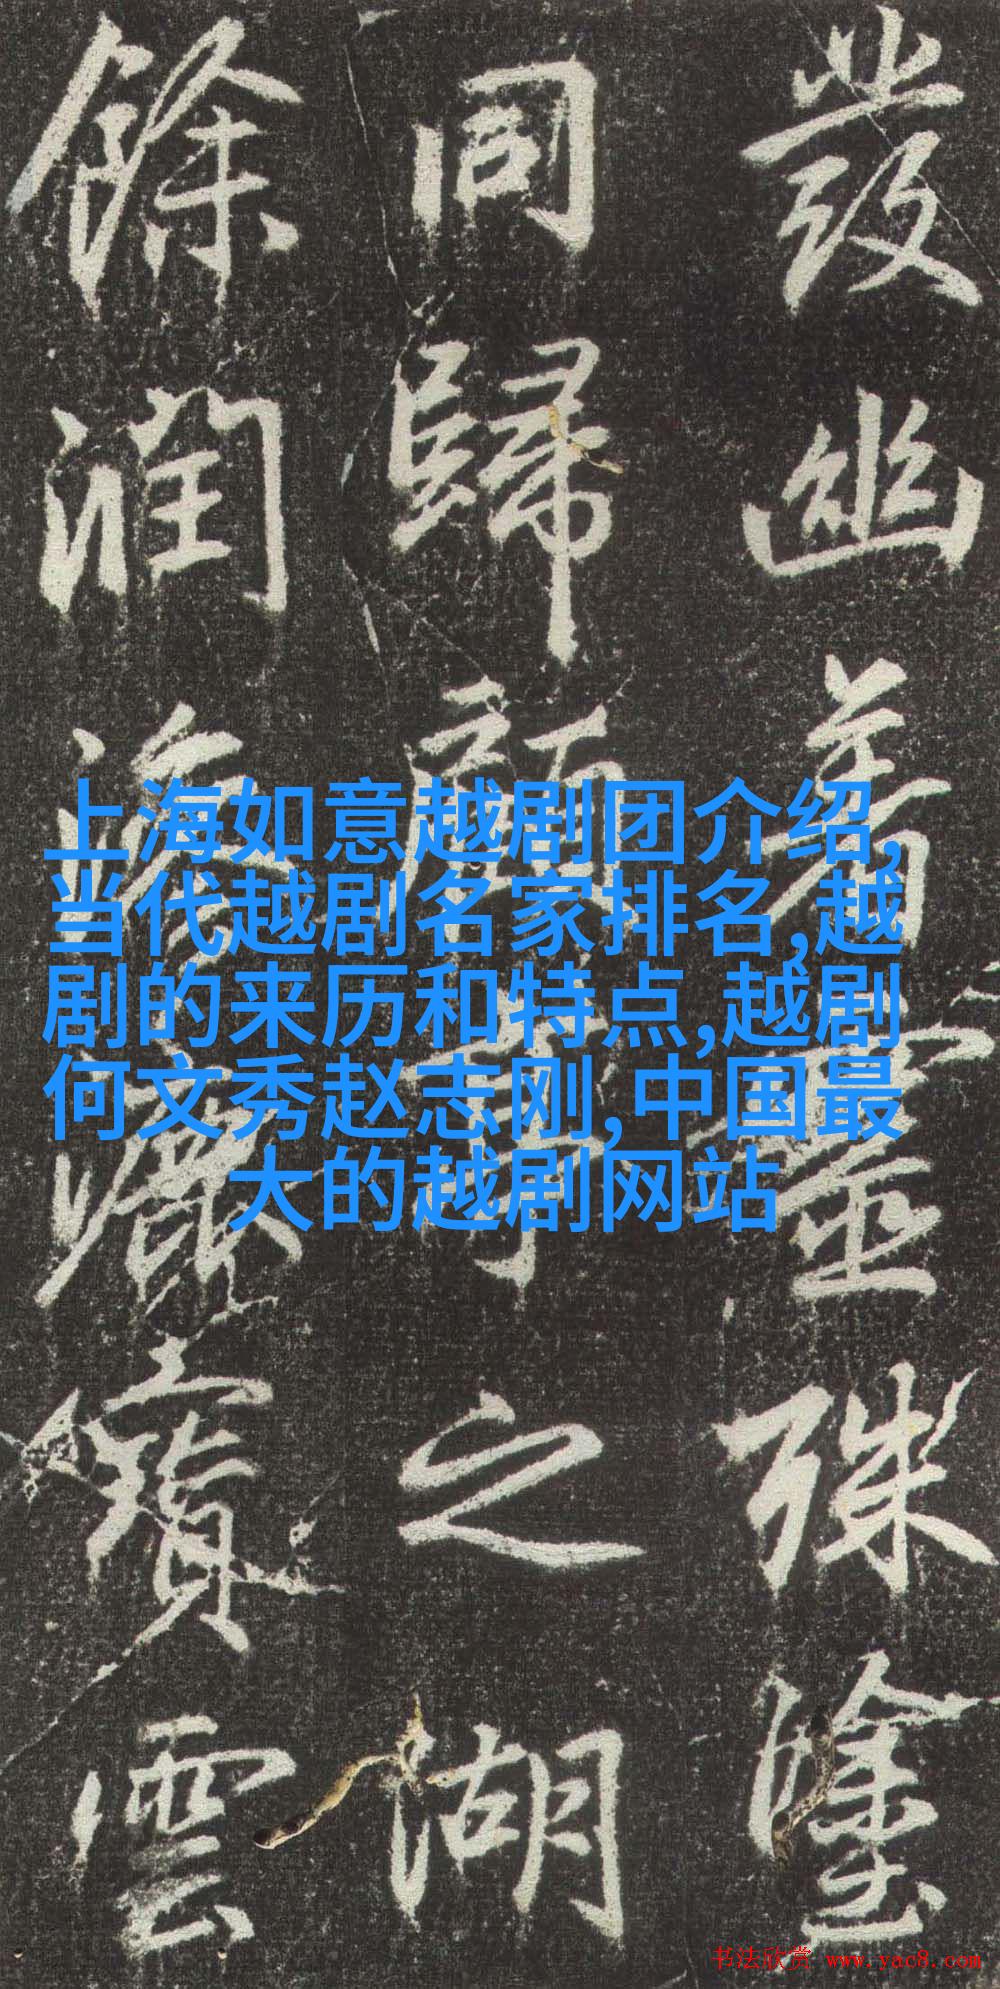 發幽着殊
同歸之湖
餘潤雲
上海如意越剧团介绍,
当代越剧名家排名,越
剧的来历和特点,越剧
何文秀赵志刚,中国最
大的越剧网站
书法欣赏 www.yac8.com